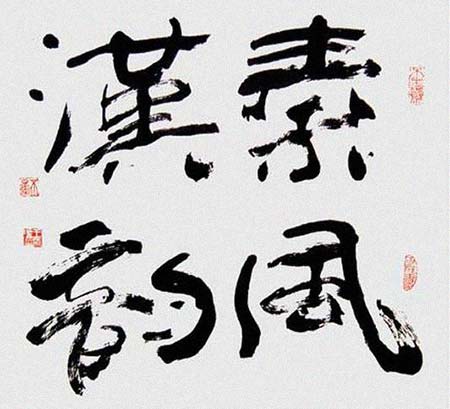 秦風
漢韵